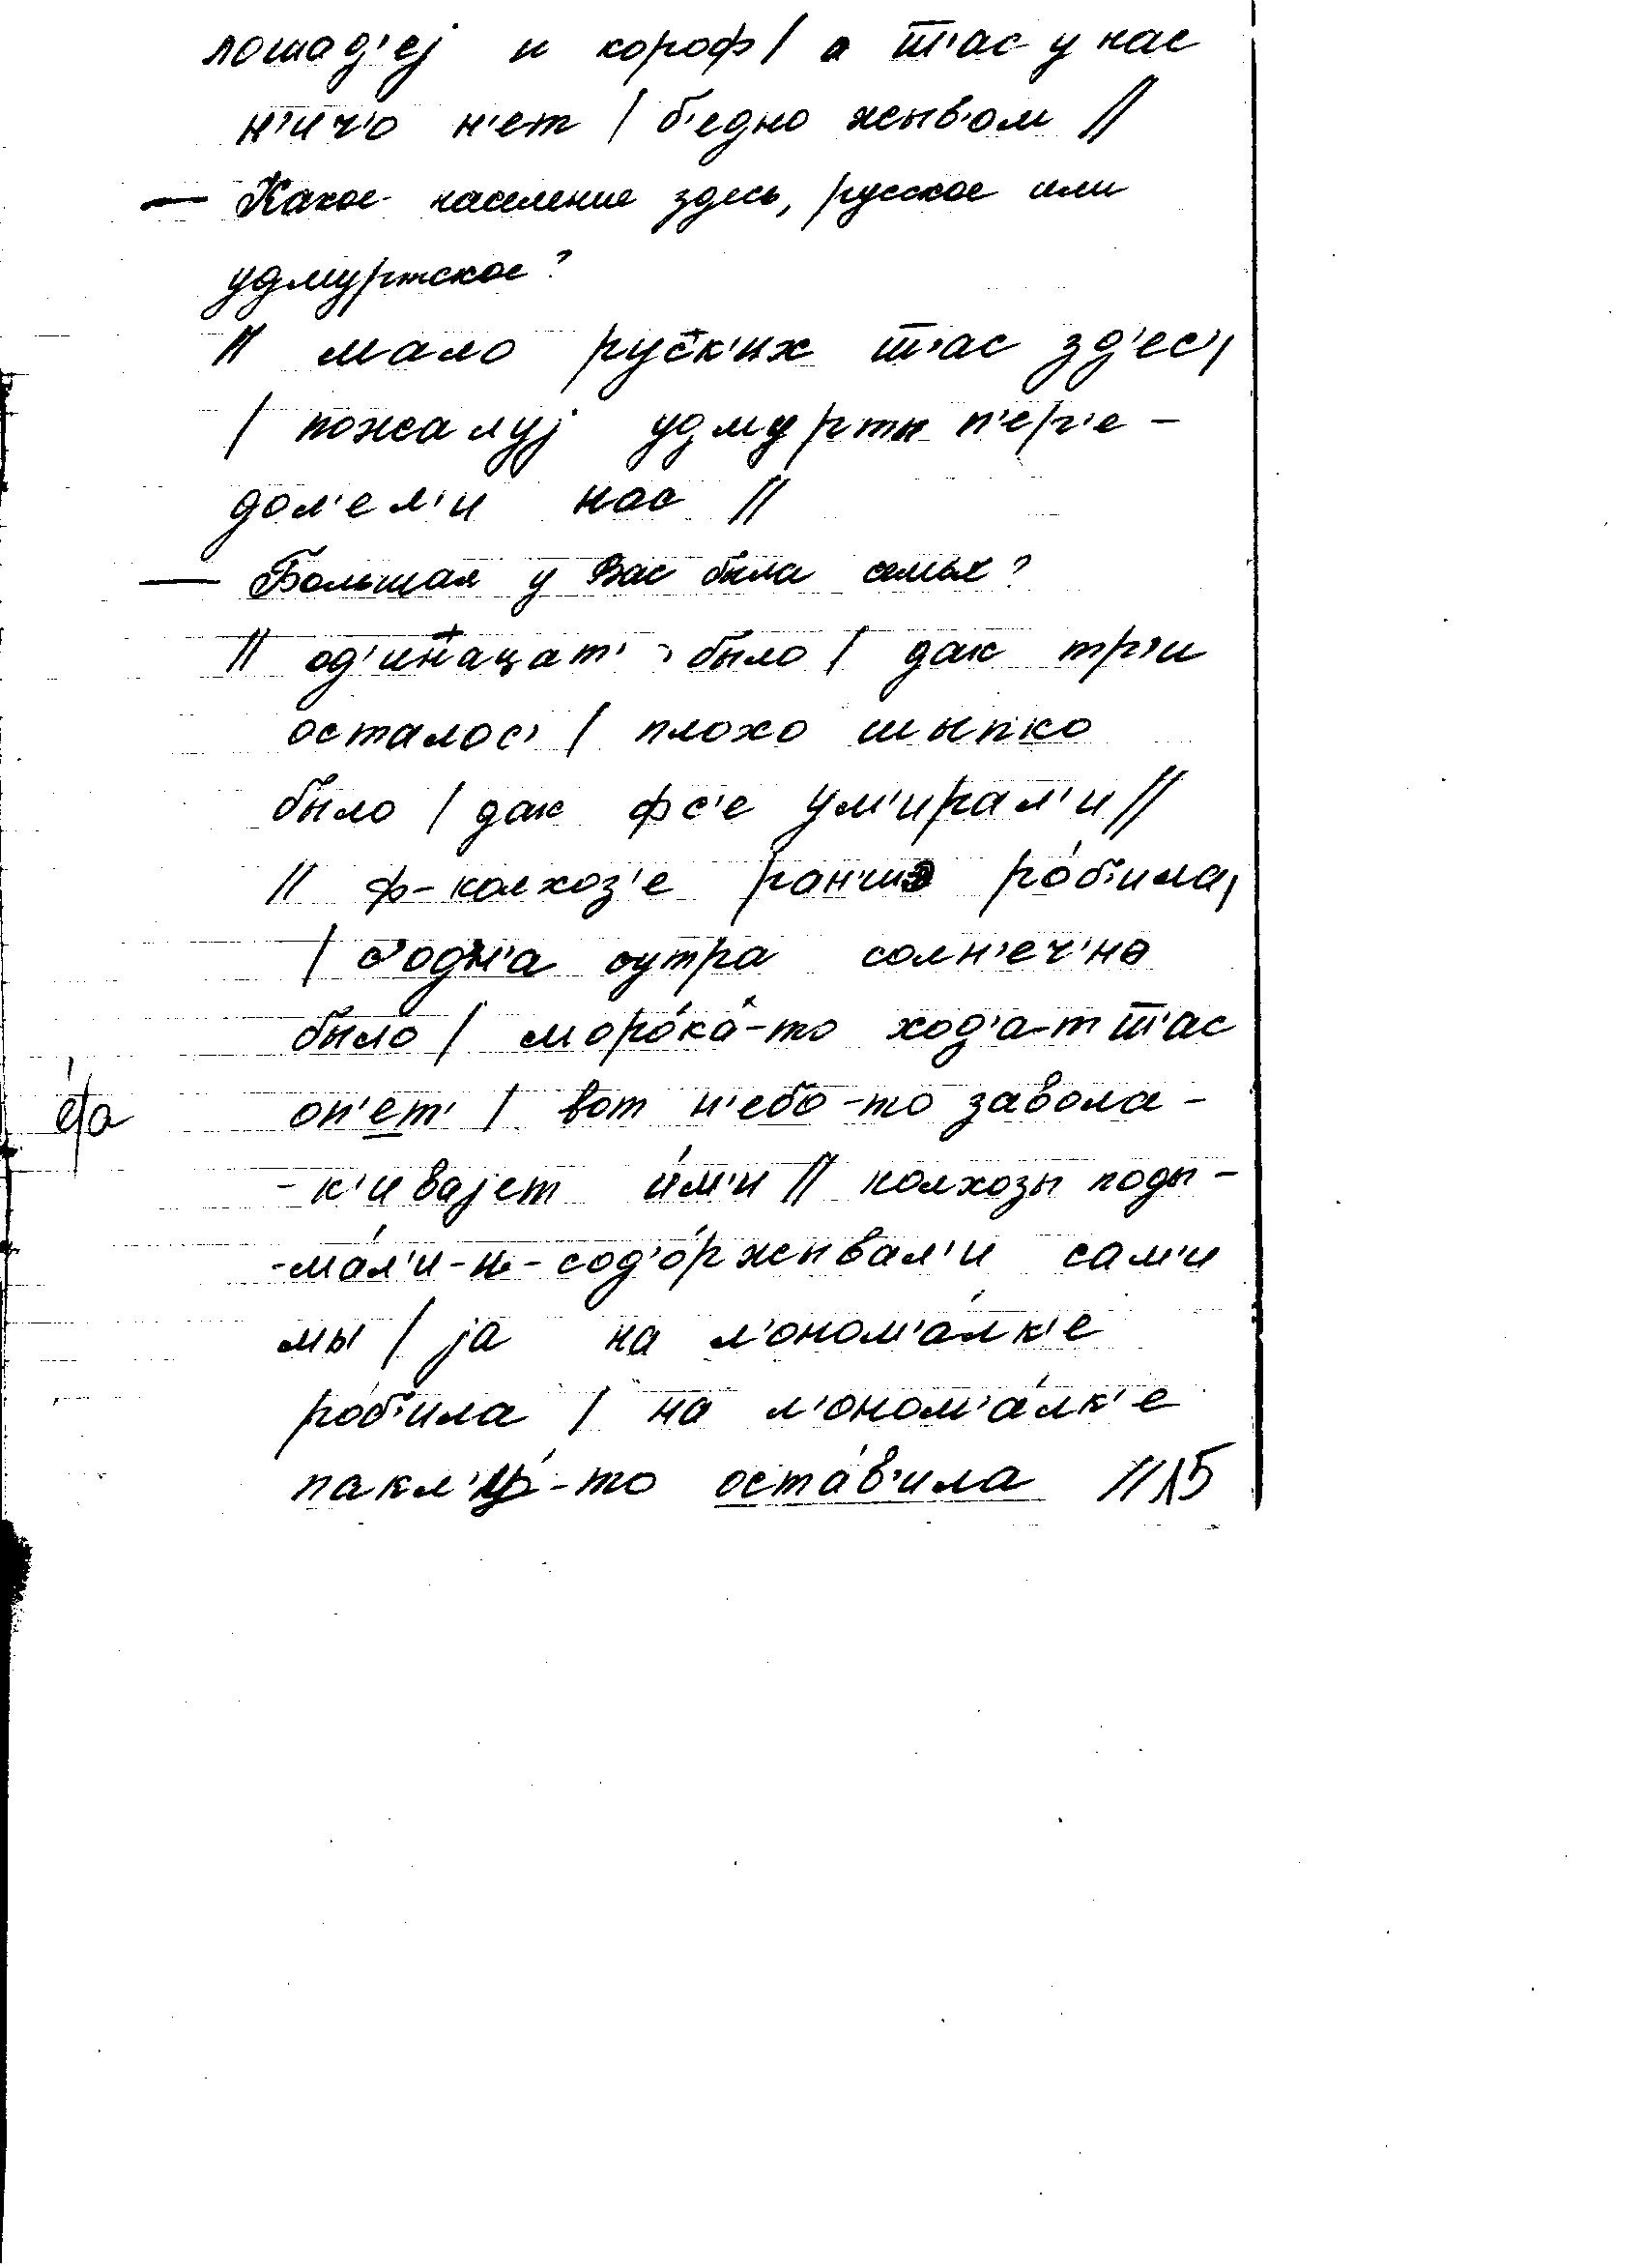 лошад'еj и короф / а т̅'ас у нас
н'ич'о н'ет / б'едно жыв'ом //
— Какое население здесь, русское или
удмуртское?
// мало рус̅к'их т̅'ас зд'ес' /
/ пожалуj удмурты п'ер'е –
дол'ел'и нас //
— Большая у Вас была семья?
// од'ин̅ацат' было / дак тр'и
осталос' / плохо шыпко
было / дак фс'е ум'ирал'и //
// ф-колхоз'е ран'шэ ро́б'ила /
/ с'одн'а оутра солн'еч'но
было / моро́ка̂-то ход'а-т т̅'ас
оп'ет' / вот н'ебо-то завола –
е́та
- к'иваjет и́м'и // колхозы поды –
-ма́л'и-и-сод'о́рживал'и сам'и
мы / jа на л'оном'а́лк'е
ро́б'ила / на л'оном'а́лк'е
оста́в'ила // 15